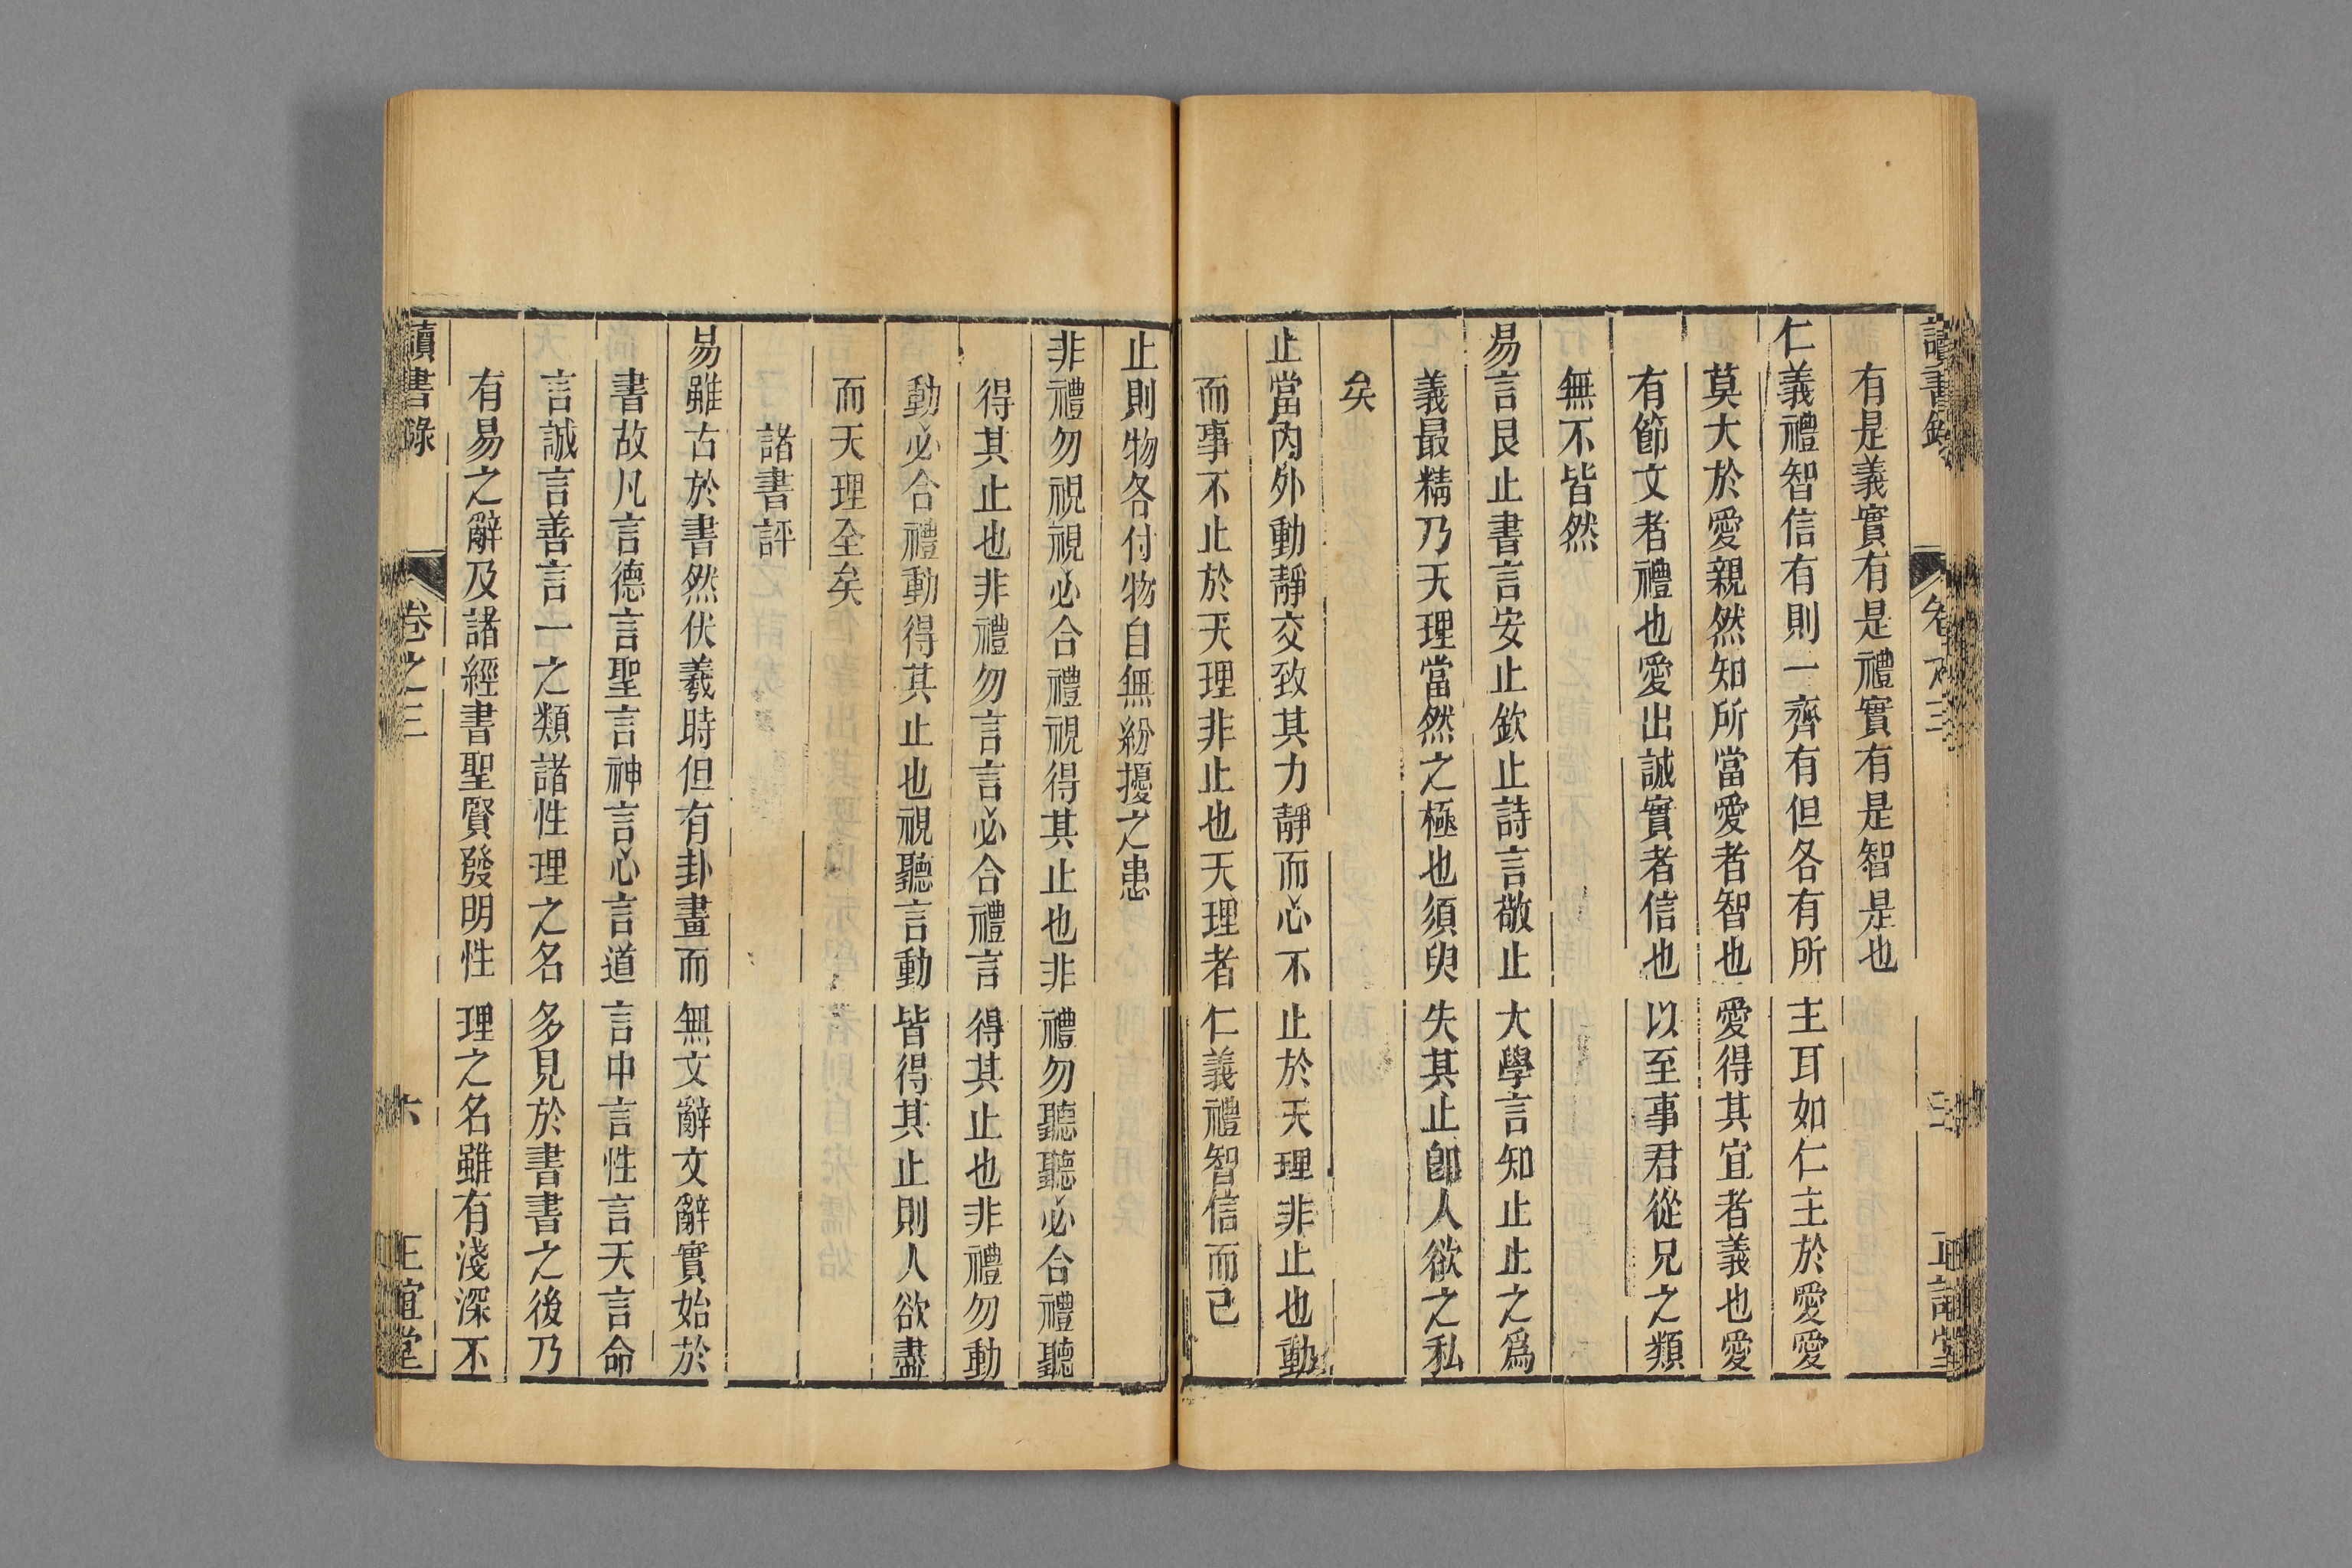 有是義實有是禮實有是智是也
仁義禮智信有則一齊有但各有所主耳如仁主於愛愛
莫大於愛親然知所當愛者智也愛得其宜者義也愛
有節文者禮也愛出誠實者信也以至事君從兄之類
無不皆然
易言艮止書言安止欽止詩言敬止大學言知止止之爲
義最精乃天理當然之極也須臾失其止卽人欲之私
矣
止當內外動靜交致其力靜而心不止於天理非止也動
而事不止於天理非止也天理者仁義禮智信而已
止則物各付物自無紛擾之患
非禮勿視視必合禮視得其止也非禮勿聽聽必合禮聽
得其止也非禮勿言言必合禮言得其止也非禮勿動
動必合禮動得其止也視聽言動皆得其止則人欲盡
而天理全矣
諸書評
易雖古於書然伏羲時但有卦畫而無文辭文辭實始於
書故凡言德言聖言神言心言道言中言性言天言命
言誠言善言一之類諸性理之名多見於書書之後乃
有易之辭及諸經書聖賢發明性理之名雖有淺深不
讀書錄 卷之三 六 正誼堂